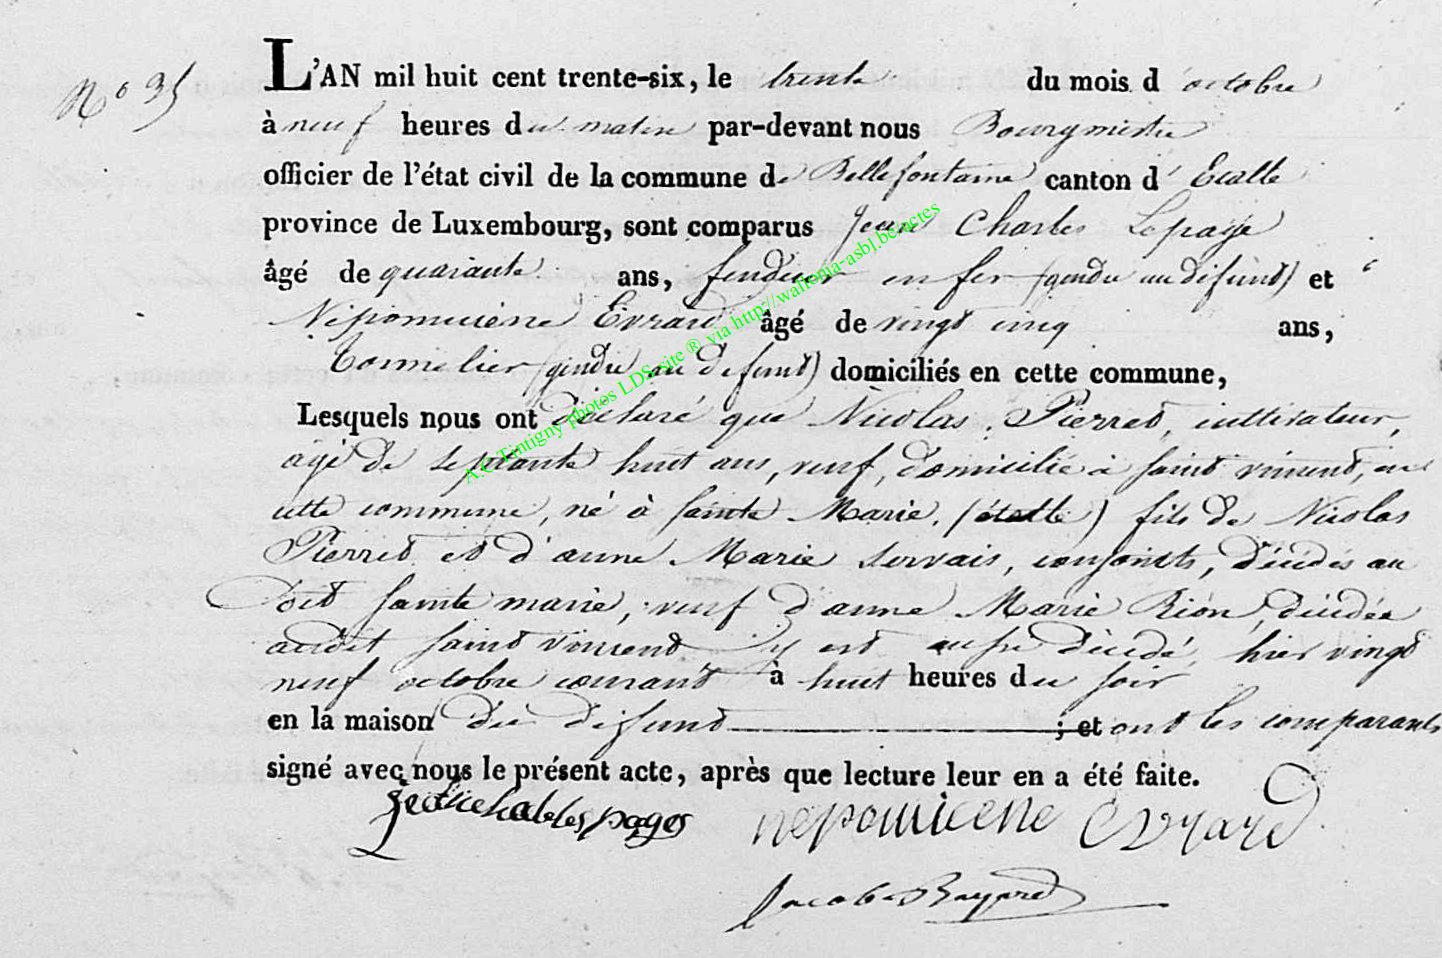 N° 35
L'AN mil huit cent trente-six, le trente du mois d'octobre
à neuf heures du matin par-devant nous Bourgmestre
officier de l'état civil de la commune de Bellefontaine canton d'Etalle
province de Luxembourg, sont comparus Jean Charles Lepage
âgé de quarante ans, fendeur en fer (gendre au défunt) et
Népomucène Evrard âgé de vingt cinq ans,
Tonnelier (gendre au défunt) domiciliés en cette commune,
Lesquels nous ont déclaré que Nicolas Pierret, cultivateur,
âgé de septante huit ans, veuf, domicilié à saint vincent, en
cette commune, né à sainte Marie, (étalle) fils de Nicolas
Pierret et d'anne Marie Servais, conjoints, décédés au
dit sainte marie, veuf d'anne Marie Rion, décédée
audit saint vincent y est aussi décédé, hier vingt
neuf octobre courant à huit heures du soir
en la maison du défunt ; et ont les comparants
signé avec nous le présent acte, après que lecture leur en a été faite.
népomicene evrard
Jacob Bayard
A.C. Tintigny photos LDS site ® via http://wallonia-asbl.be/actes